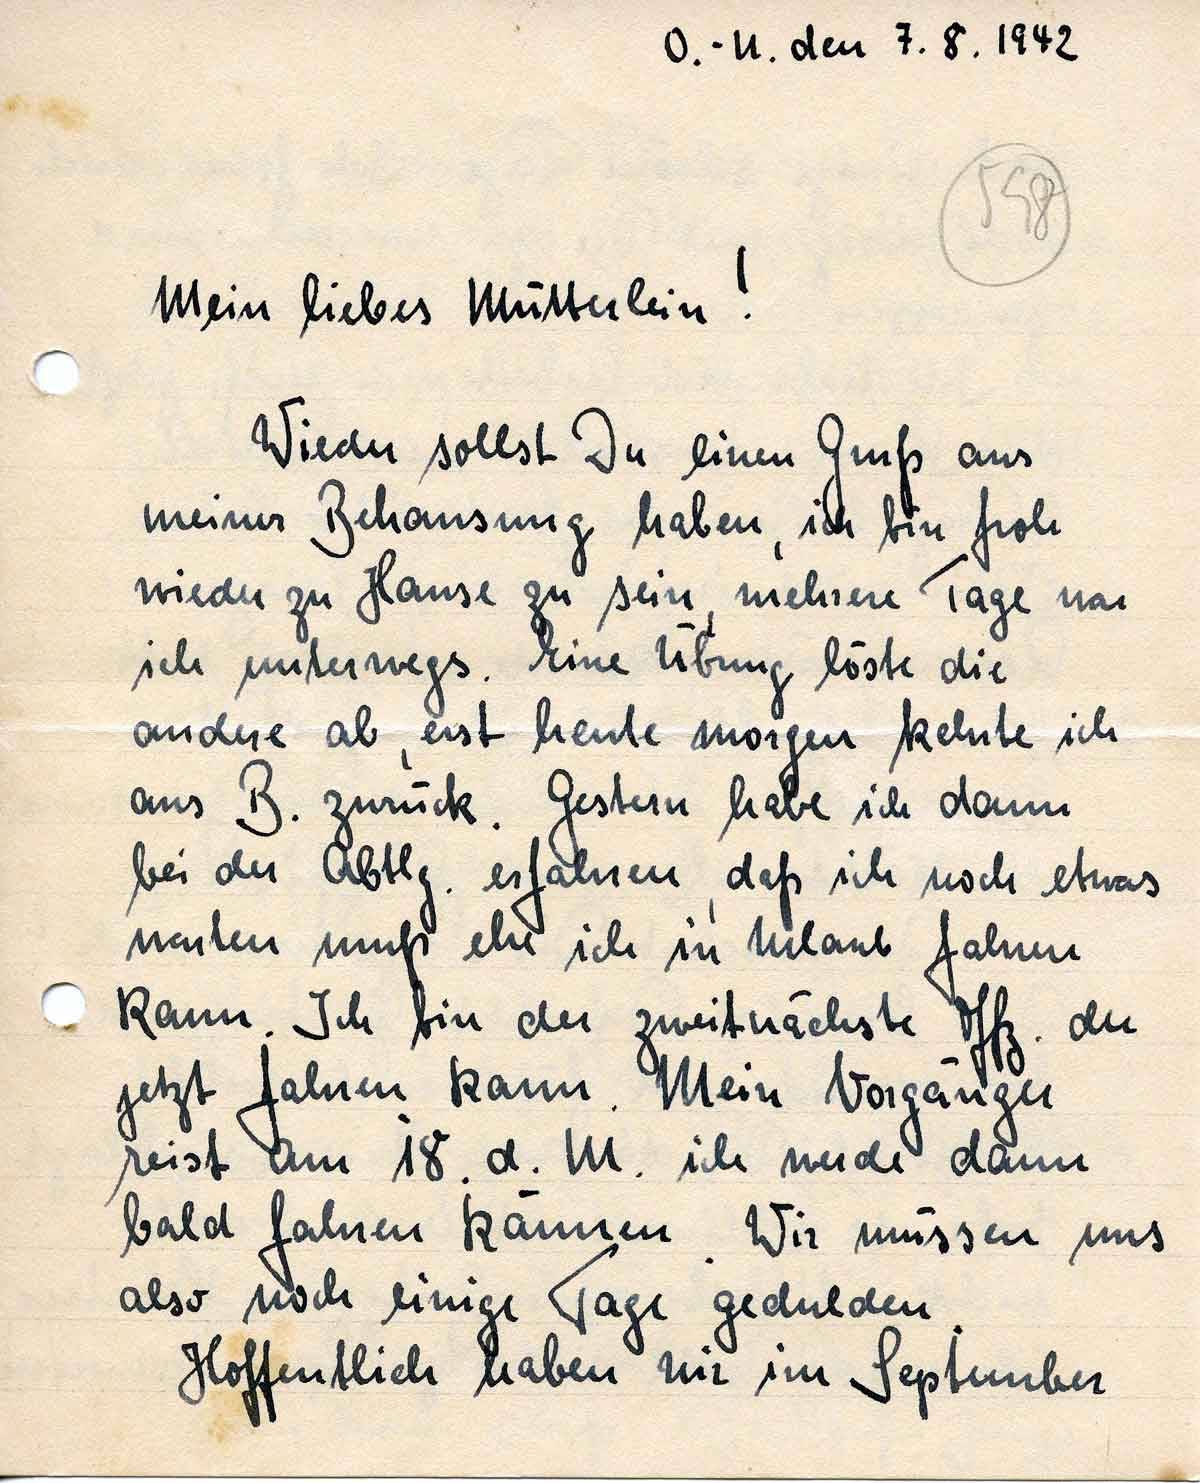 O.-U. den 7. 8. 1942
598
Mein liebes Mütterlein!
Wieder sollst Du einen Gruß aus
meiner Behausung haben, ich bin froh
wieder zu Hause zu sein, mehrere Tage war
ich unterwegs. Eine Übung löste die
andere ab, erst heute morgen kehrte ich
aus B. zurück. Gestern habe ich dann
bei der Abtlg. erfahren, daß ich noch etwas
warten muß ehe ich in Urlaub fahren
kann. Ich bin der zweitnächste Uffz. der
jetzt fahren kann. Mein Vorgänger
reist am 18. d. M. ich werde dann
bald fahren können. Wir müssen uns
also noch einige Tage gedulden.
Hoffentlich haben wir im September